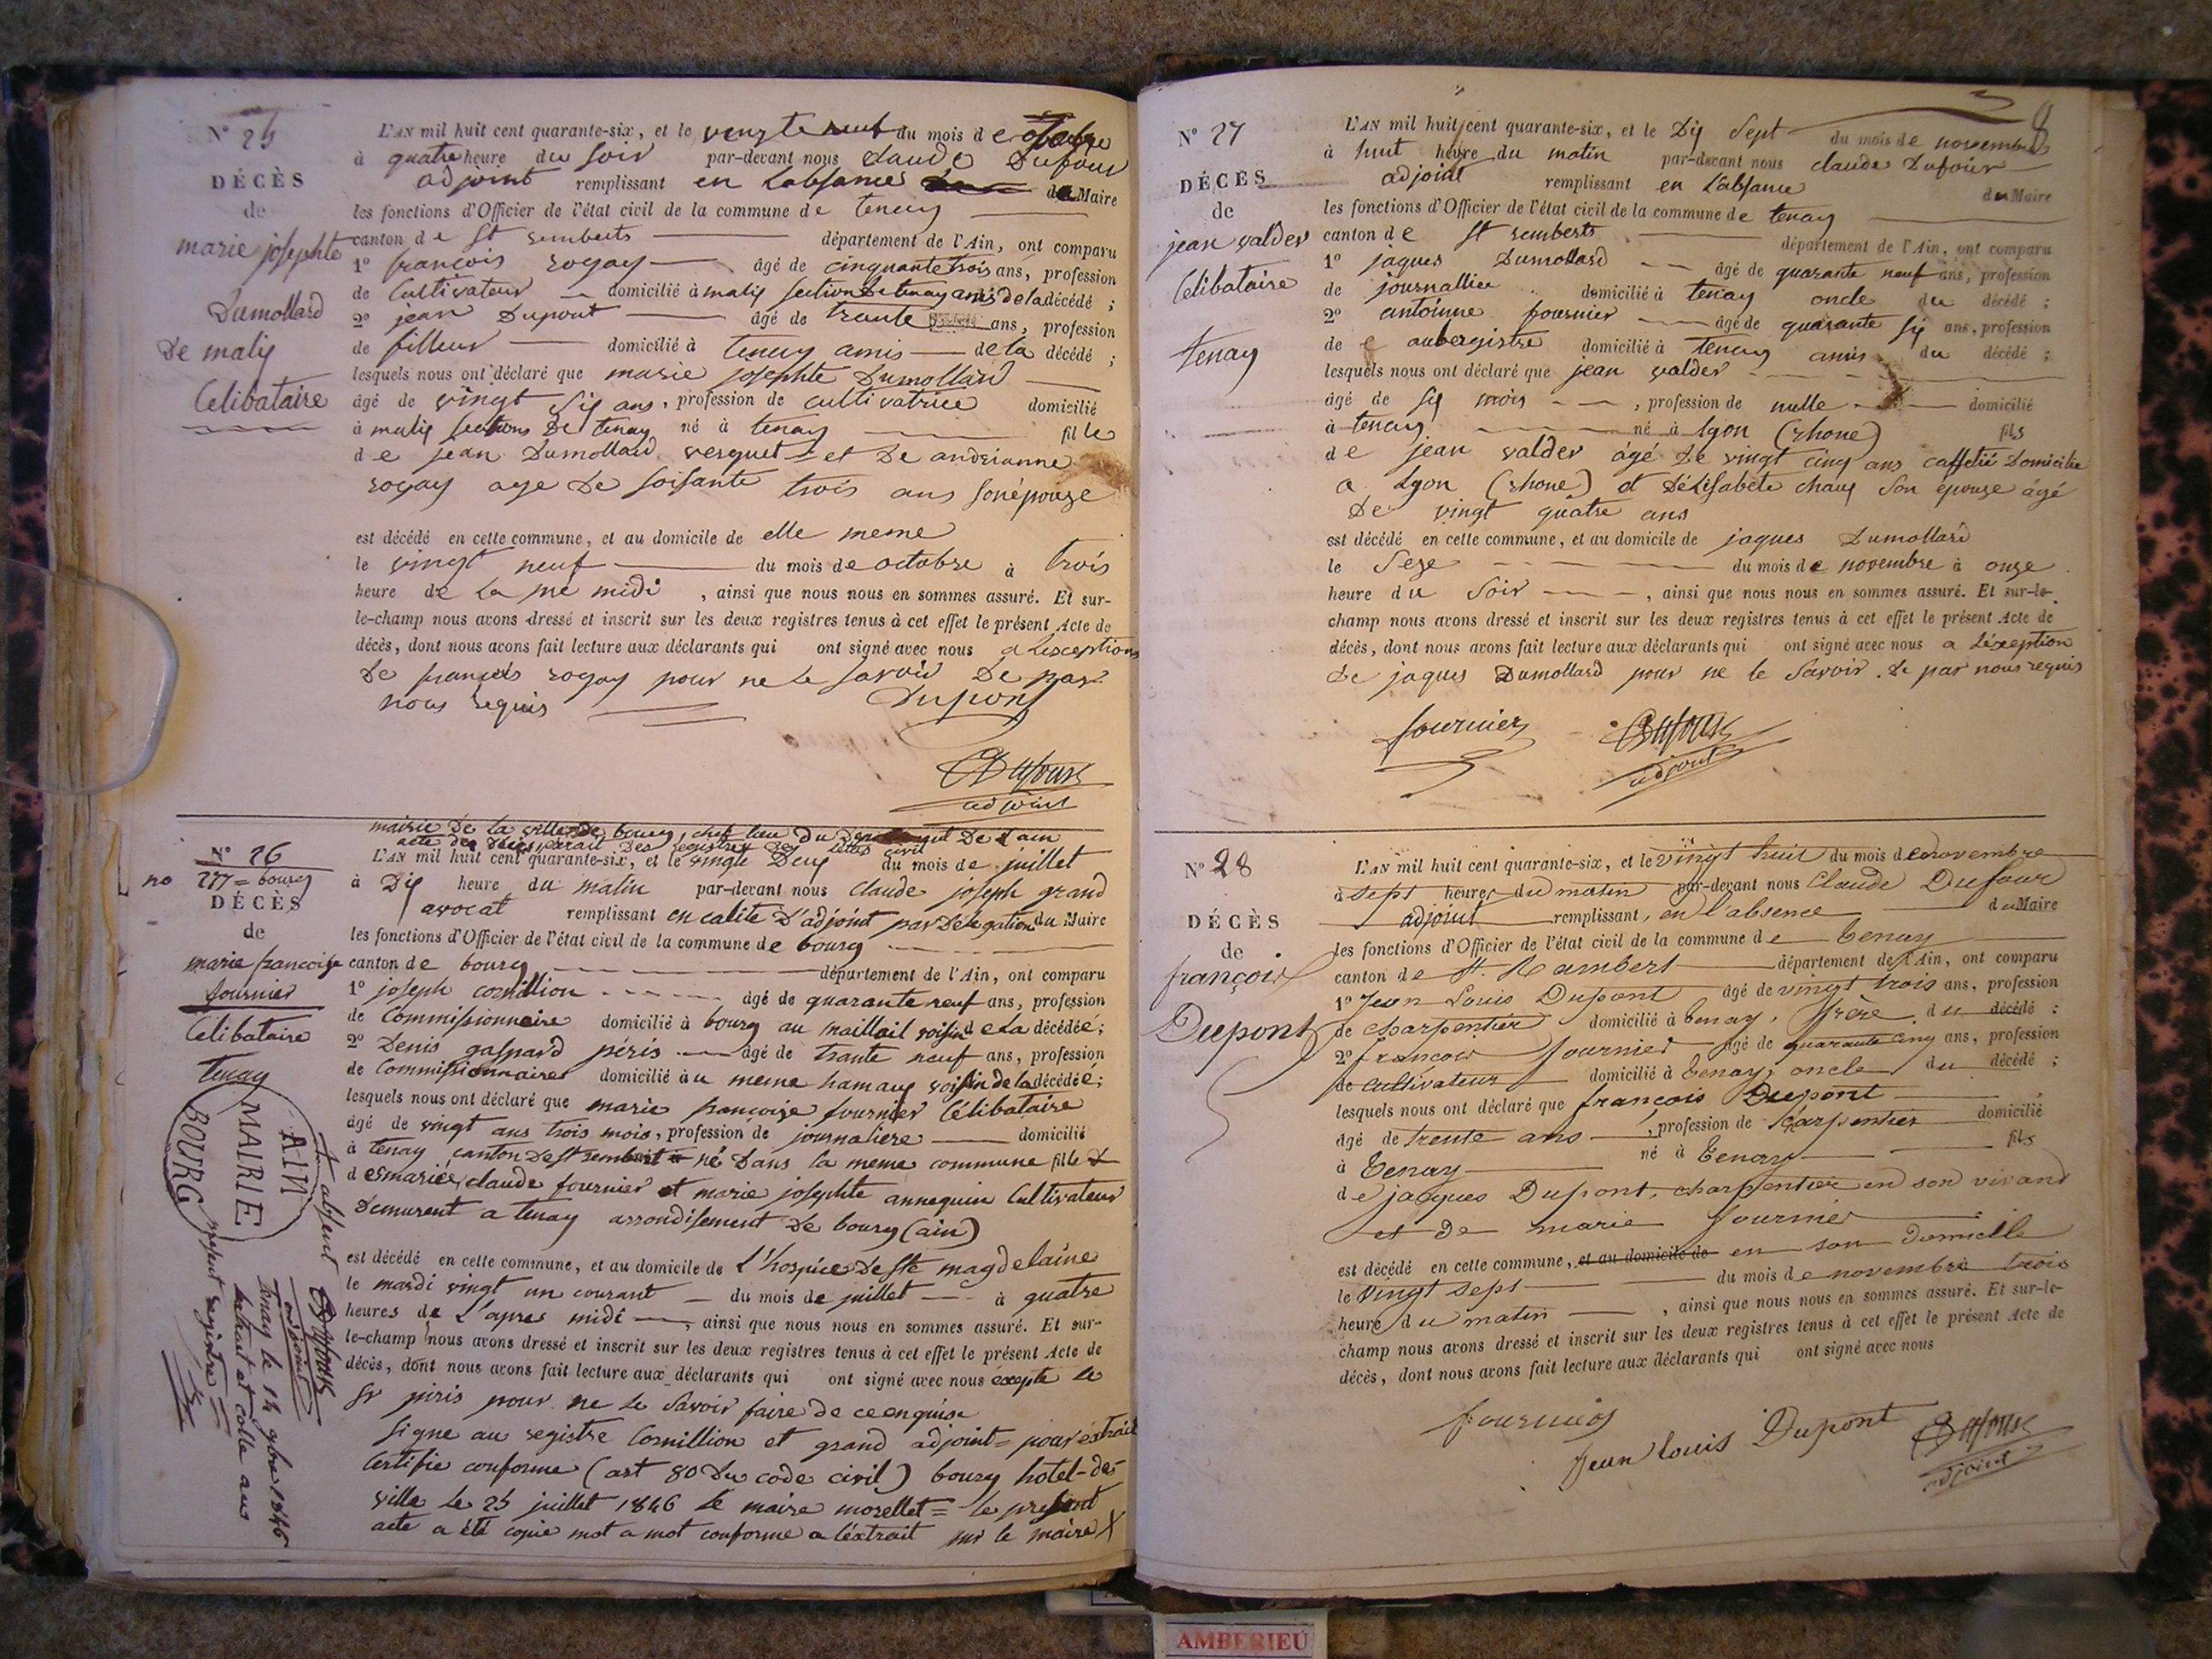 N° 25
DÉCÈS
de
marie josephte
Dumollard
De malix
Celibataire
L'AN mil huit cent quarante-six, et le vingt neuf du mois de octobre
à quatre heure du soir par-devant nous claude Dufour
adjoint remplissant en Labsances du Maire
les fonctions d'Officier de l'état civil de la commune de tenay
canton de St remberts département de l'Ain, ont comparu
1° françois rogay âgé de cinquante trois ans, profession
de Cultivateur domicilié à malix section de tenay amis de la décédé ;
2° jean Dupont âgé de trante ans, profession
de filleur domicilié à tenay amis de la décédé ;
lesquels nous ont déclaré que marie josephte Dumollard
âgé de vingt six ans, profession de cultivatrice domicilié
à malix sections De tenay né à tenay fille
de jean Dumollard verguet et De andrianne
rogay age De soisante trois ans son épouze
est décédé en cette commune, et au domicile de elle meme
le vingt neuf du mois de octobre à trois
heure de La mé midi, ainsi que nous nous en sommes assuré. Et sur-
le-champ nous avons dressé et inscrit sur les deux registres tenus à cet effet le présent Acte de
décès, dont nous avons fait lecture aux déclarants qui ont signé avec nous a Lexceptions
De françois rogay pour ne le savoir De par
nous requis
Dupont
CDufour
adjoint
mairie De la ville de bourg, chef lieu du De Lain
acte de décès extrait Des registres De létat civil
N° 26
no 277 = bourg
DÉCÈS
de
marie francoise
fournier
Celibataire
Tenay
AIN
MAIRIE
BOURG
L'AN mil huit cent quarante-six, et le vingte Deux du mois de juillet
à Dix heure du matin par-devant nous claude joseph grand
avocat remplissant en calité D'adjoint par Délégation du Maire
les fonctions d'Officier de l'état civil de la commune de bourg
canton de bourg département de l'Ain, ont comparu
1° joseph cornillion âgé de quarante neuf ans, profession
de Commissionnaire domicilié à bourg au maillail voisin de La décédéé ;
2° Denis gaspard péris âgé de trante neuf ans, profession
de Commissionnaires domicilié à u meme hamaux voisin de la décédéé ;
lesquels nous ont déclaré que marie françoise fournier Célibataire
âgé de vingt ans trois mois, profession de journaliere domicilié
à tenay canton De St rembert né Dans la meme commune fille
de marié claude fournier et marie josephte annequin Cultivateur
Demurent a tenay arrondisement De bourg (ain)
est décédé en cette commune, et au domicile de L'hospice De Ste magdelaine
le mardi vingt un courant du mois de juillet à quatre
heures de L'apres midi, ainsi que nous nous en sommes assuré. Et sur-
le-champ nous avons dressé et inscrit sur les deux registres tenus à cet effet le présent Acte de
décès, dont nous avons fait lecture aux déclarants qui ont signé avec nous éxepté le
Sr piris pour ne le savoir faire de ce enquise
signe au registre Cornillion et grand adjoint = pour éxtrait
Certifie conforme (art 80 Du code civil) bourg hotel-de-
ville le 25 juillet 1846 le maire morellet = le présent
acte a été copie mot a mot conforme a léxtrait par le maire X
X absent CDufour
adjoint
Tenay le 14 9bre 1846
extrait et collé au
présent registre
N° 27
DÉCÈS
de
jean valder
Celibataire
tenay
8
L'AN mil huit cent quarante-six, et le Dix Sept du mois de novembre
à huit heure du matin par-devant nous claude Dufour
adjoint remplissant en Labsance du Maire
les fonctions d'Officier de l'état civil de la commune de tenay
canton de St remberts département de l'Ain, ont comparu
1° jaques Dumollard âgé de quarante neuf ans, profession
de journallier domicilié à tenay oncle du décédé ;
2° antoinne fournier âgé de quarante six ans, profession
de aubergistre domicilié à tenay amis du décédé ;
lesquels nous ont déclaré que jean valder
âgé de six mois, profession de nulle domicilié
à tenay né à Lyon (rhone) fils
de jean valder ágé De vingt cinq ans caffetié Domicilie
a Lyon (rhone) et Délisabete chaux son épouze ágé
De vingt quatre ans
est décédé en cette commune, et au domicile de jaques Dumollard
le Seze du mois de novembre à onze
heure du Soir, ainsi que nous nous en sommes assuré. Et sur-le-
champ nous avons dressé et inscrit sur les deux registres tenus à cet effet le présent Acte de
décès, dont nous avons fait lecture aux déclarants qui ont signé avec nous a Léxeption
De jaques Dumollard pour ne le savoir. De par nous requis
fournier CDufour
adjoint
N° 28
DÉCÈS
de
françois
Dupont
L'AN mil huit cent quarante-six, et le vingt huit du mois de novembre
à sept heures du matin par-devant nous Claude Dufour
adjoint remplissant, en l'absence du Maire
les fonctions d'Officier de l'état civil de la commune de Tenay
canton de St. Rambert département de l'Ain, ont comparu
1° Jean Louis Dupont âgé de vingt trois ans, profession
de charpentier domicilié à Tenay, frère du décédé ;
2° françois fournier âgé de quarante cinq ans, profession
de cultivateur domicilié à Tenay, oncle du décédé ;
lesquels nous ont déclaré que françois Dupont
âgé de trente ans, profession de charpentier domicilié
à Tenay né à Tenay fils
de jacques Dupont, charpentier en son vivant
et de marie fournier
est décédé en cette commune, et au domicile de en son domicile
le vingt sept du mois de novembre à trois
heure du matin, ainsi que nous nous en sommes assuré. Et sur-le-
champ nous avons dressé et inscrit sur les deux registres tenus à cet effet le présent Acte de
décès, dont nous avons fait lecture aux déclarants qui ont signé avec nous
fournier
Jean Louis Dupont CDufour
adjoint
AMBERIEU